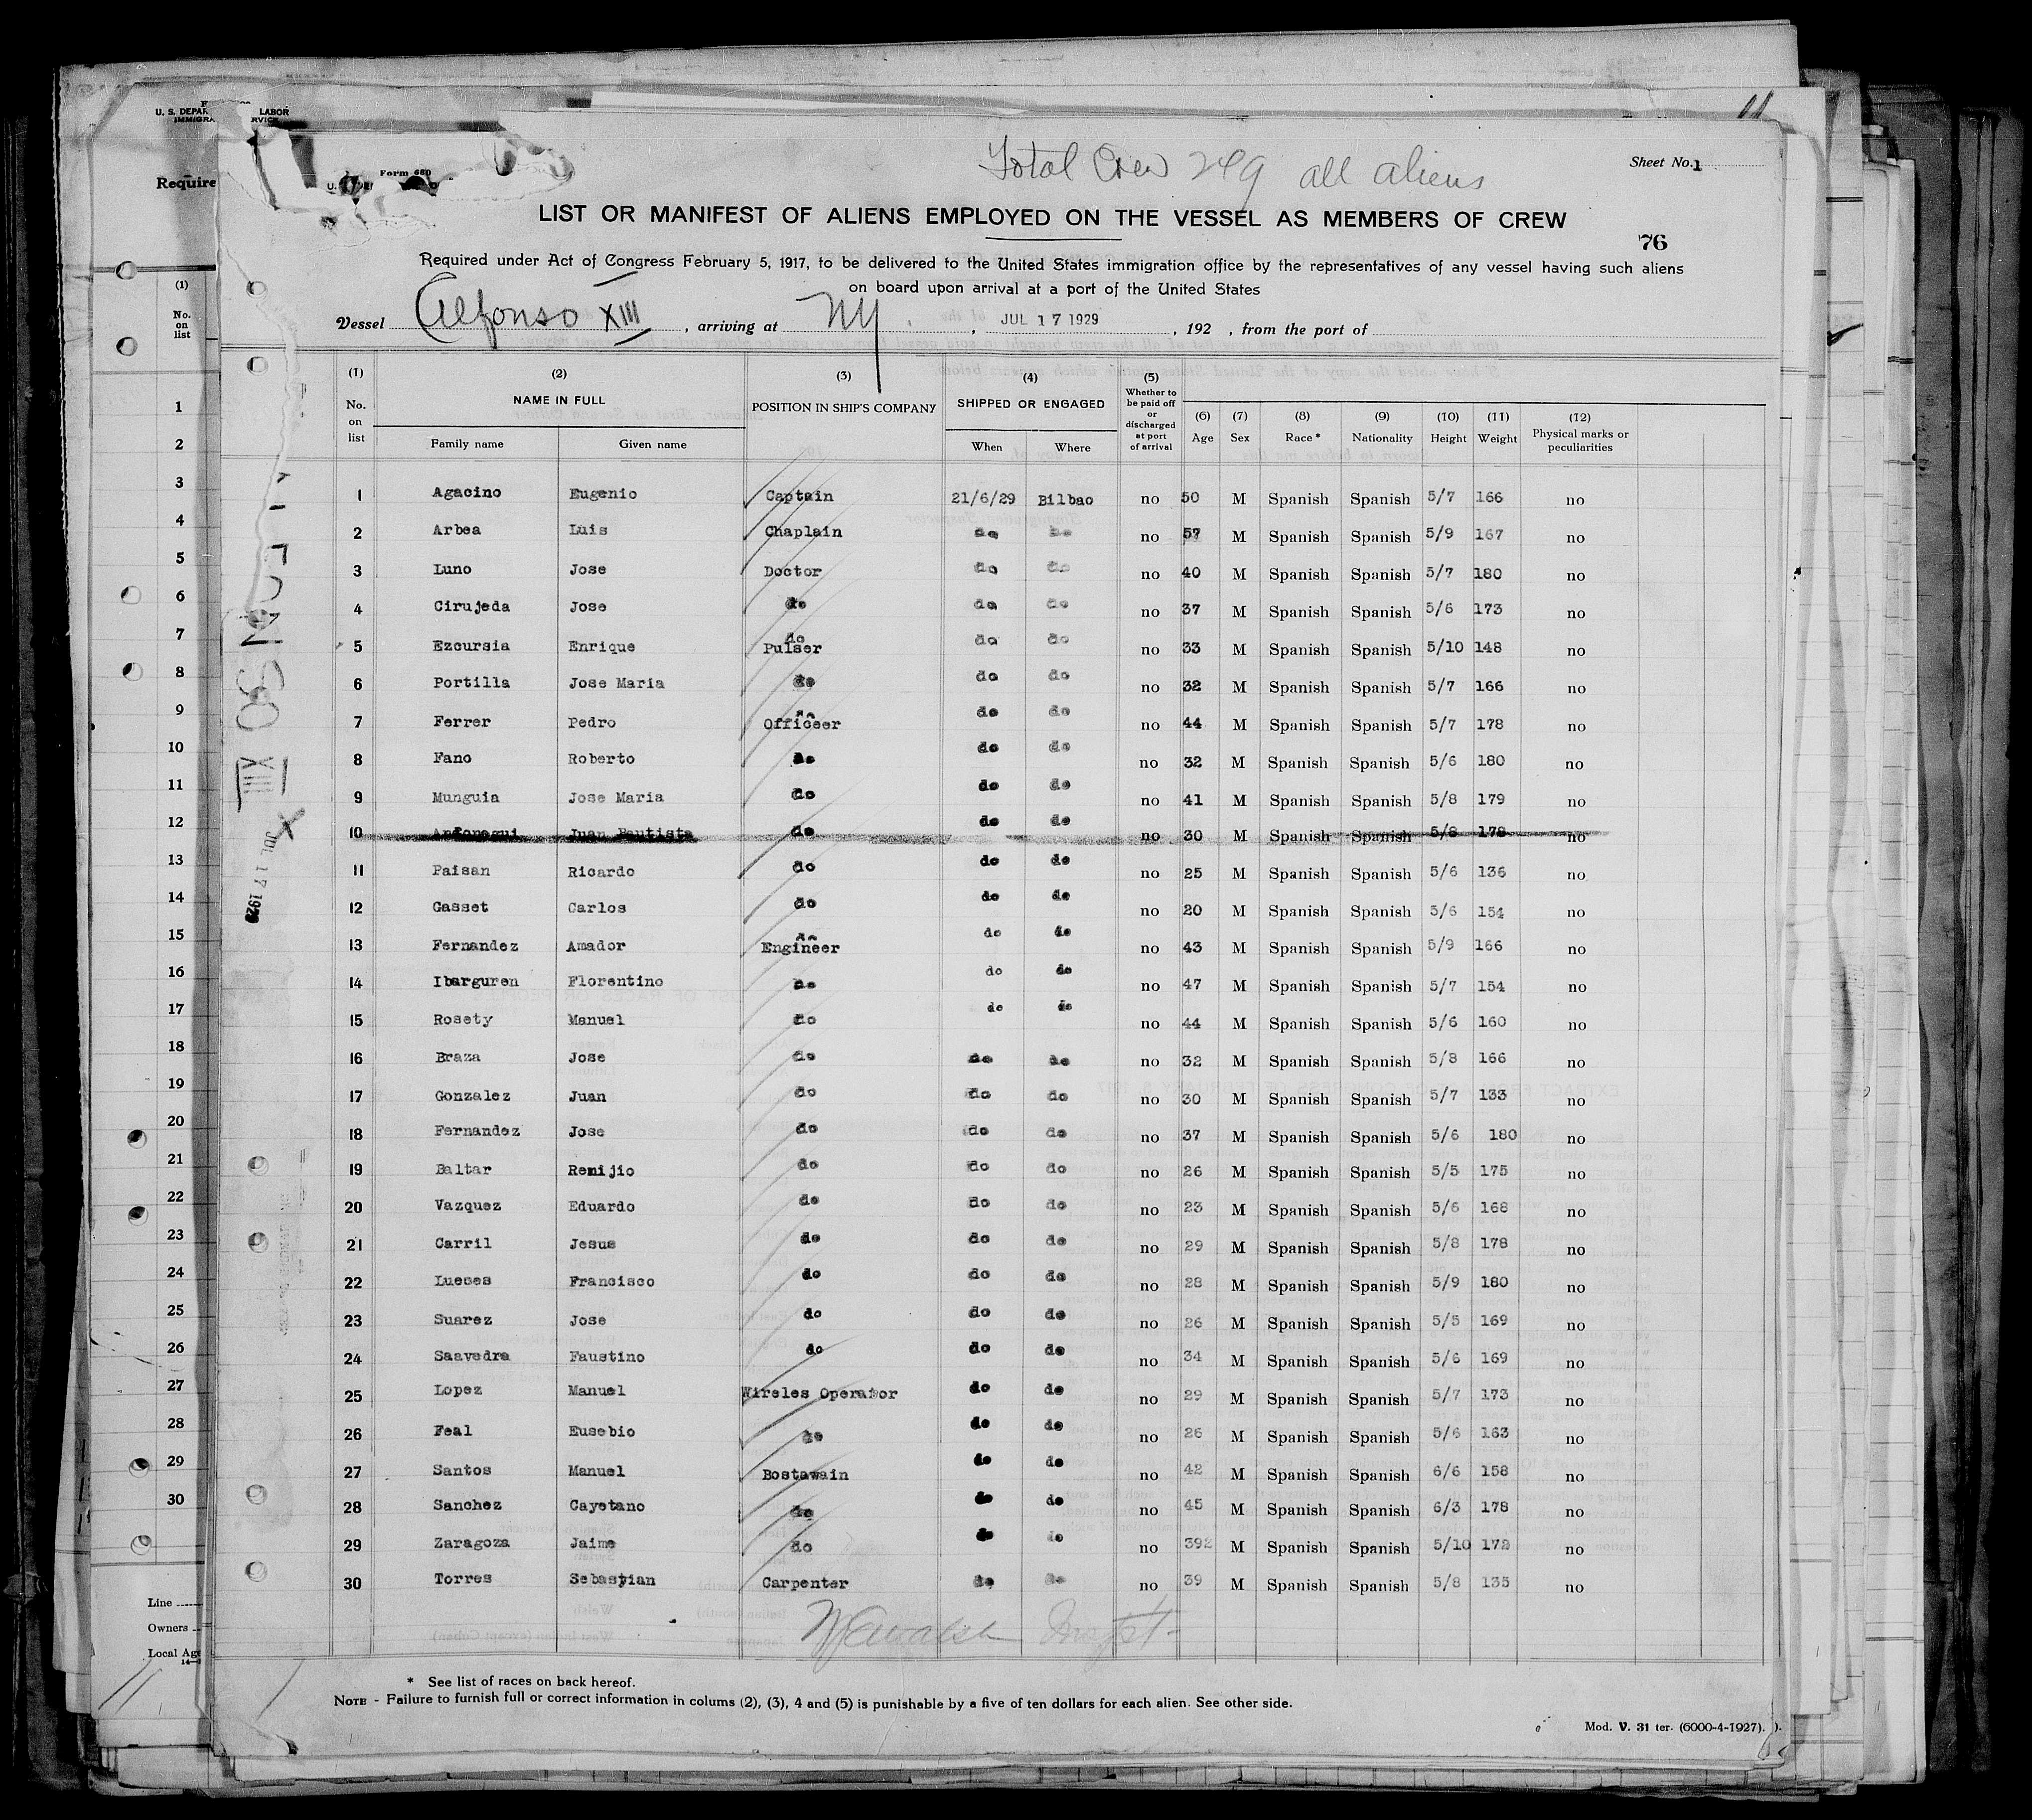 U. S. DEPAR LABOR
IMMIGRA RVICE
Require
Form 680
Total Crew 249 all aliens
Sheet No. 1
LIST OR MANIFEST OF ALIENS EMPLOYED ON THE VESSEL AS MEMBERS OF CREW
76
Required under Act of Congress February 5, 1917, to be delivered to the United States immigration office by the representatives of any vessel having such aliens
on board upon arrival at a port of the United States
Vessel Alfonso XIII , arriving at NY , JUL 17 1929 , 192 , from the port of
(1) No. on list (2) NAME IN FULL Family name Given name (3) POSITION IN SHIP'S COMPANY (4) SHIPPED OR ENGAGED When Where (5) Whether to be paid off or discharged at port of arrival (6) Age (7) Sex (8) Race * (9) Nationality (10) Height (11) Weight (12) Physical marks or peculiarities
1 Agacino Eugenio Captain 21/6/29 Bilbao no 50 M Spanish Spanish 5/7 166 no
2 Arbea Luis Chaplain do do no 57 M Spanish Spanish 5/9 167 no
3 Luno Jose Doctor do do no 40 M Spanish Spanish 5/7 180 no
4 Cirujeda Jose do do do no 37 M Spanish Spanish 5/6 173 no
5 Ezcursia Enrique do Pulser do do no 33 M Spanish Spanish 5/10 148 no
6 Portilla Jose Maria do do do no 32 M Spanish Spanish 5/7 166 no
7 Ferrer Pedro Officeer do do no 44 M Spanish Spanish 5/7 178 no
8 Fano Roberto do do do no 32 M Spanish Spanish 5/6 180 no
9 Munguia Jose Maria do do do no 41 M Spanish Spanish 5/8 179 no
10 Juan Bautista do do do no 30 M Spanish Spanish 5/8 178 no
11 Paisan Ricardo do do do no 25 M Spanish Spanish 5/6 136 no
12 Gasset Carlos do do do no 20 M Spanish Spanish 5/6 154 no
13 Fernandez Amador do Engineer do do no 43 M Spanish Spanish 5/9 166 no
14 Ibarguren Florentino do do do no 47 M Spanish Spanish 5/7 154 no
15 Rosety Manuel do do do no 44 M Spanish Spanish 5/6 160 no
16 Braza Jose do do do no 32 M Spanish Spanish 5/8 166 no
17 Gonzalez Juan do do do no 30 M Spanish Spanish 5/7 133 no
18 Fernandez Jose do do do no 37 M Spanish Spanish 5/6 180 no
19 Baltar Remijio do do do no 26 M Spanish Spanish 5/5 175 no
20 Vazquez Eduardo do do do no 23 M Spanish Spanish 5/6 168 no
21 Carril Jesus do do do no 29 M Spanish Spanish 5/8 178 no
22 Lueses Francisco do do do no 28 M Spanish Spanish 5/9 180 no
23 Suarez Jose do do do no 26 M Spanish Spanish 5/5 169 no
24 Saavedra Faustino do do do no 34 M Spanish Spanish 5/6 169 no
25 Lopez Manuel Wireles Operator do do no 29 M Spanish Spanish 5/7 173 no
26 Feal Eusebio do do do no 26 M Spanish Spanish 5/6 163 no
27 Santos Manuel Bostawain do do no 42 M Spanish Spanish 6/6 158 no
28 Sanchez Cayetano do do do no 45 M Spanish Spanish 6/3 178 no
29 Zaragoza Jaime do do do no 392 M Spanish Spanish 5/10 172 no
30 Torres Sebastian Carpenter do do no 39 M Spanish Spanish 5/8 135 no
* See list of races on back hereof.
NOTE - Failure to furnish full or correct information in colums (2), (3), 4 and (5) is punishable by a five of ten dollars for each alien. See other side.
Mod. V. 31 ter. (6000-4-1927).
ALFONSO XIII
JUL 17 1929
(1)
No.
on
list
1
2
3
4
5
6
7
8
9
10
11
12
13
14
15
16
17
18
19
20
21
22
23
24
25
26
27
28
29
30
Line
Owners
Local Ag